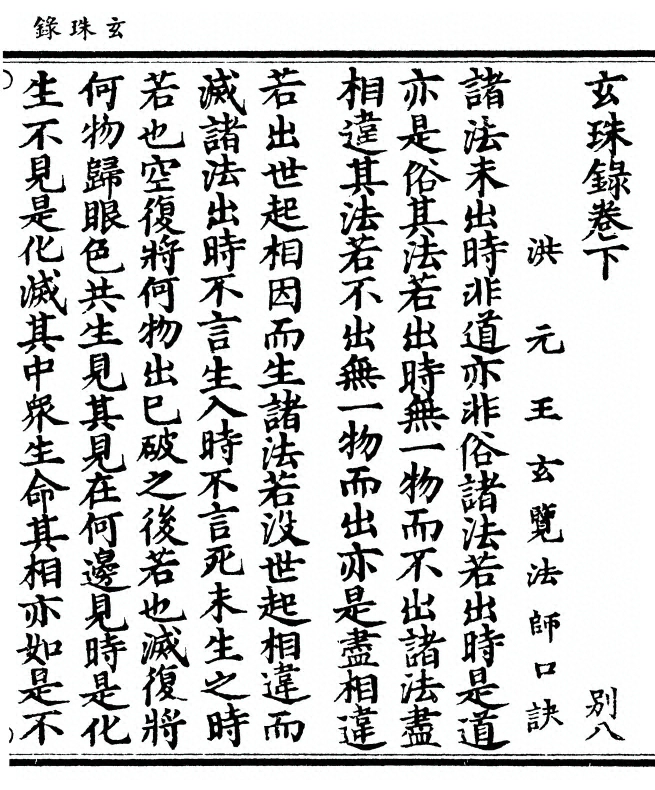 玄珠錄
玄珠錄卷下
別八
洪元王玄覽法師口訣
諸法未出時非道亦非俗諸法若出時是道
亦是俗其法若出時無一物而不出諸法盡
相違其法若不出無一物而出亦是盡相違
若出世起相因而生諸法若沒世起相違而
滅諸法出時不言生入時不言死未生之時
若也空復將何物出已破之後若也滅復將
何物歸眼色共生見其見在何邊見時是化
生不見是化滅其中眾生命其相亦如是不